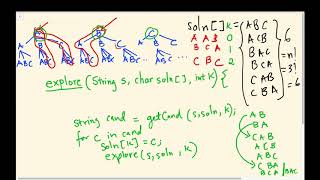 soln[] k = ABC
A A B 0 ACB 6
B C A 1 BAC = n!
C B C 2 BCA = 3!
CAB = 6
CBA
A B C
A B C A B C A B C
ABC ABC ABC ABC ... ABC
explore (String s, char soln[], int k) {
String cand = getCand (s, soln, k);
for c in cand
soln[k] = c;
explore (s, soln, k)
A B
B A
C A B
A C B
A B C
C B A
B C A BAC